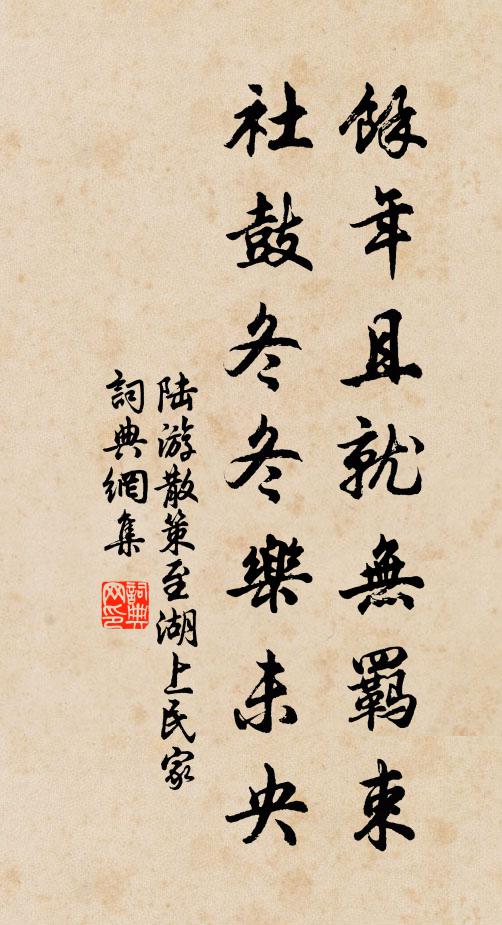 餘年且就無羈束
社鼓冬冬樂未央
陸游散策至湖上民家
詞典網集
詞典
网印